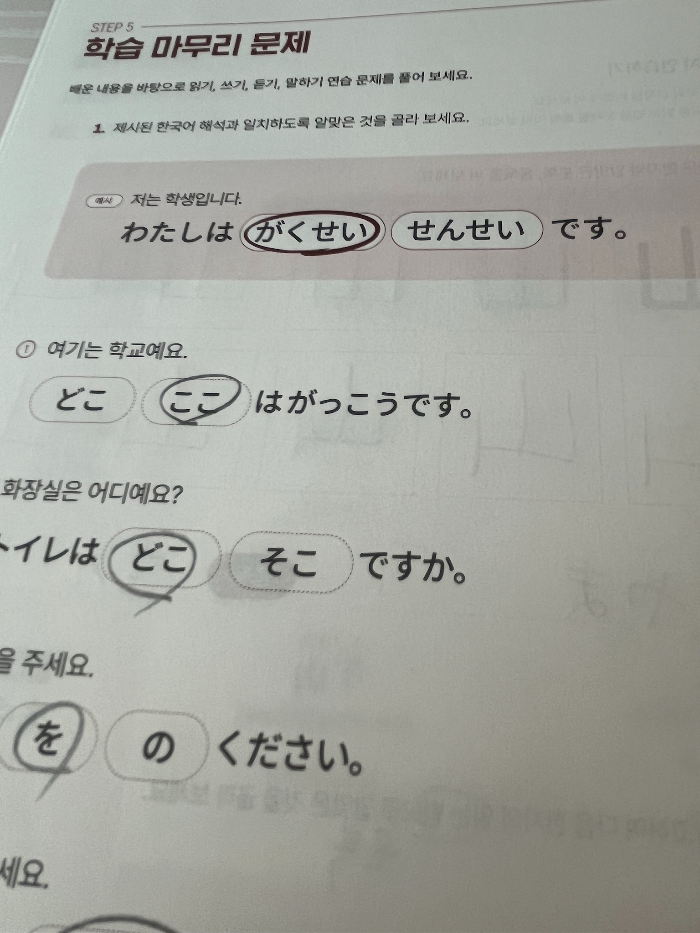 STEP 5
학습 마무리 문제
배운 내용을 바탕으로 읽기, 쓰기, 듣기, 말하기 연습 문제를 풀어 보세요.
1. 제시된 한국어 해석과 일치하도록 알맞은 것을 골라 보세요.
예시 저는 학생입니다.
わたしは がくせい せんせい です。
① 여기는 학교예요.
どこ ここ はがっこうです。
화장실은 어디예요?
トイレは どこ そこ ですか。
을 주세요.
を の ください。
세요.